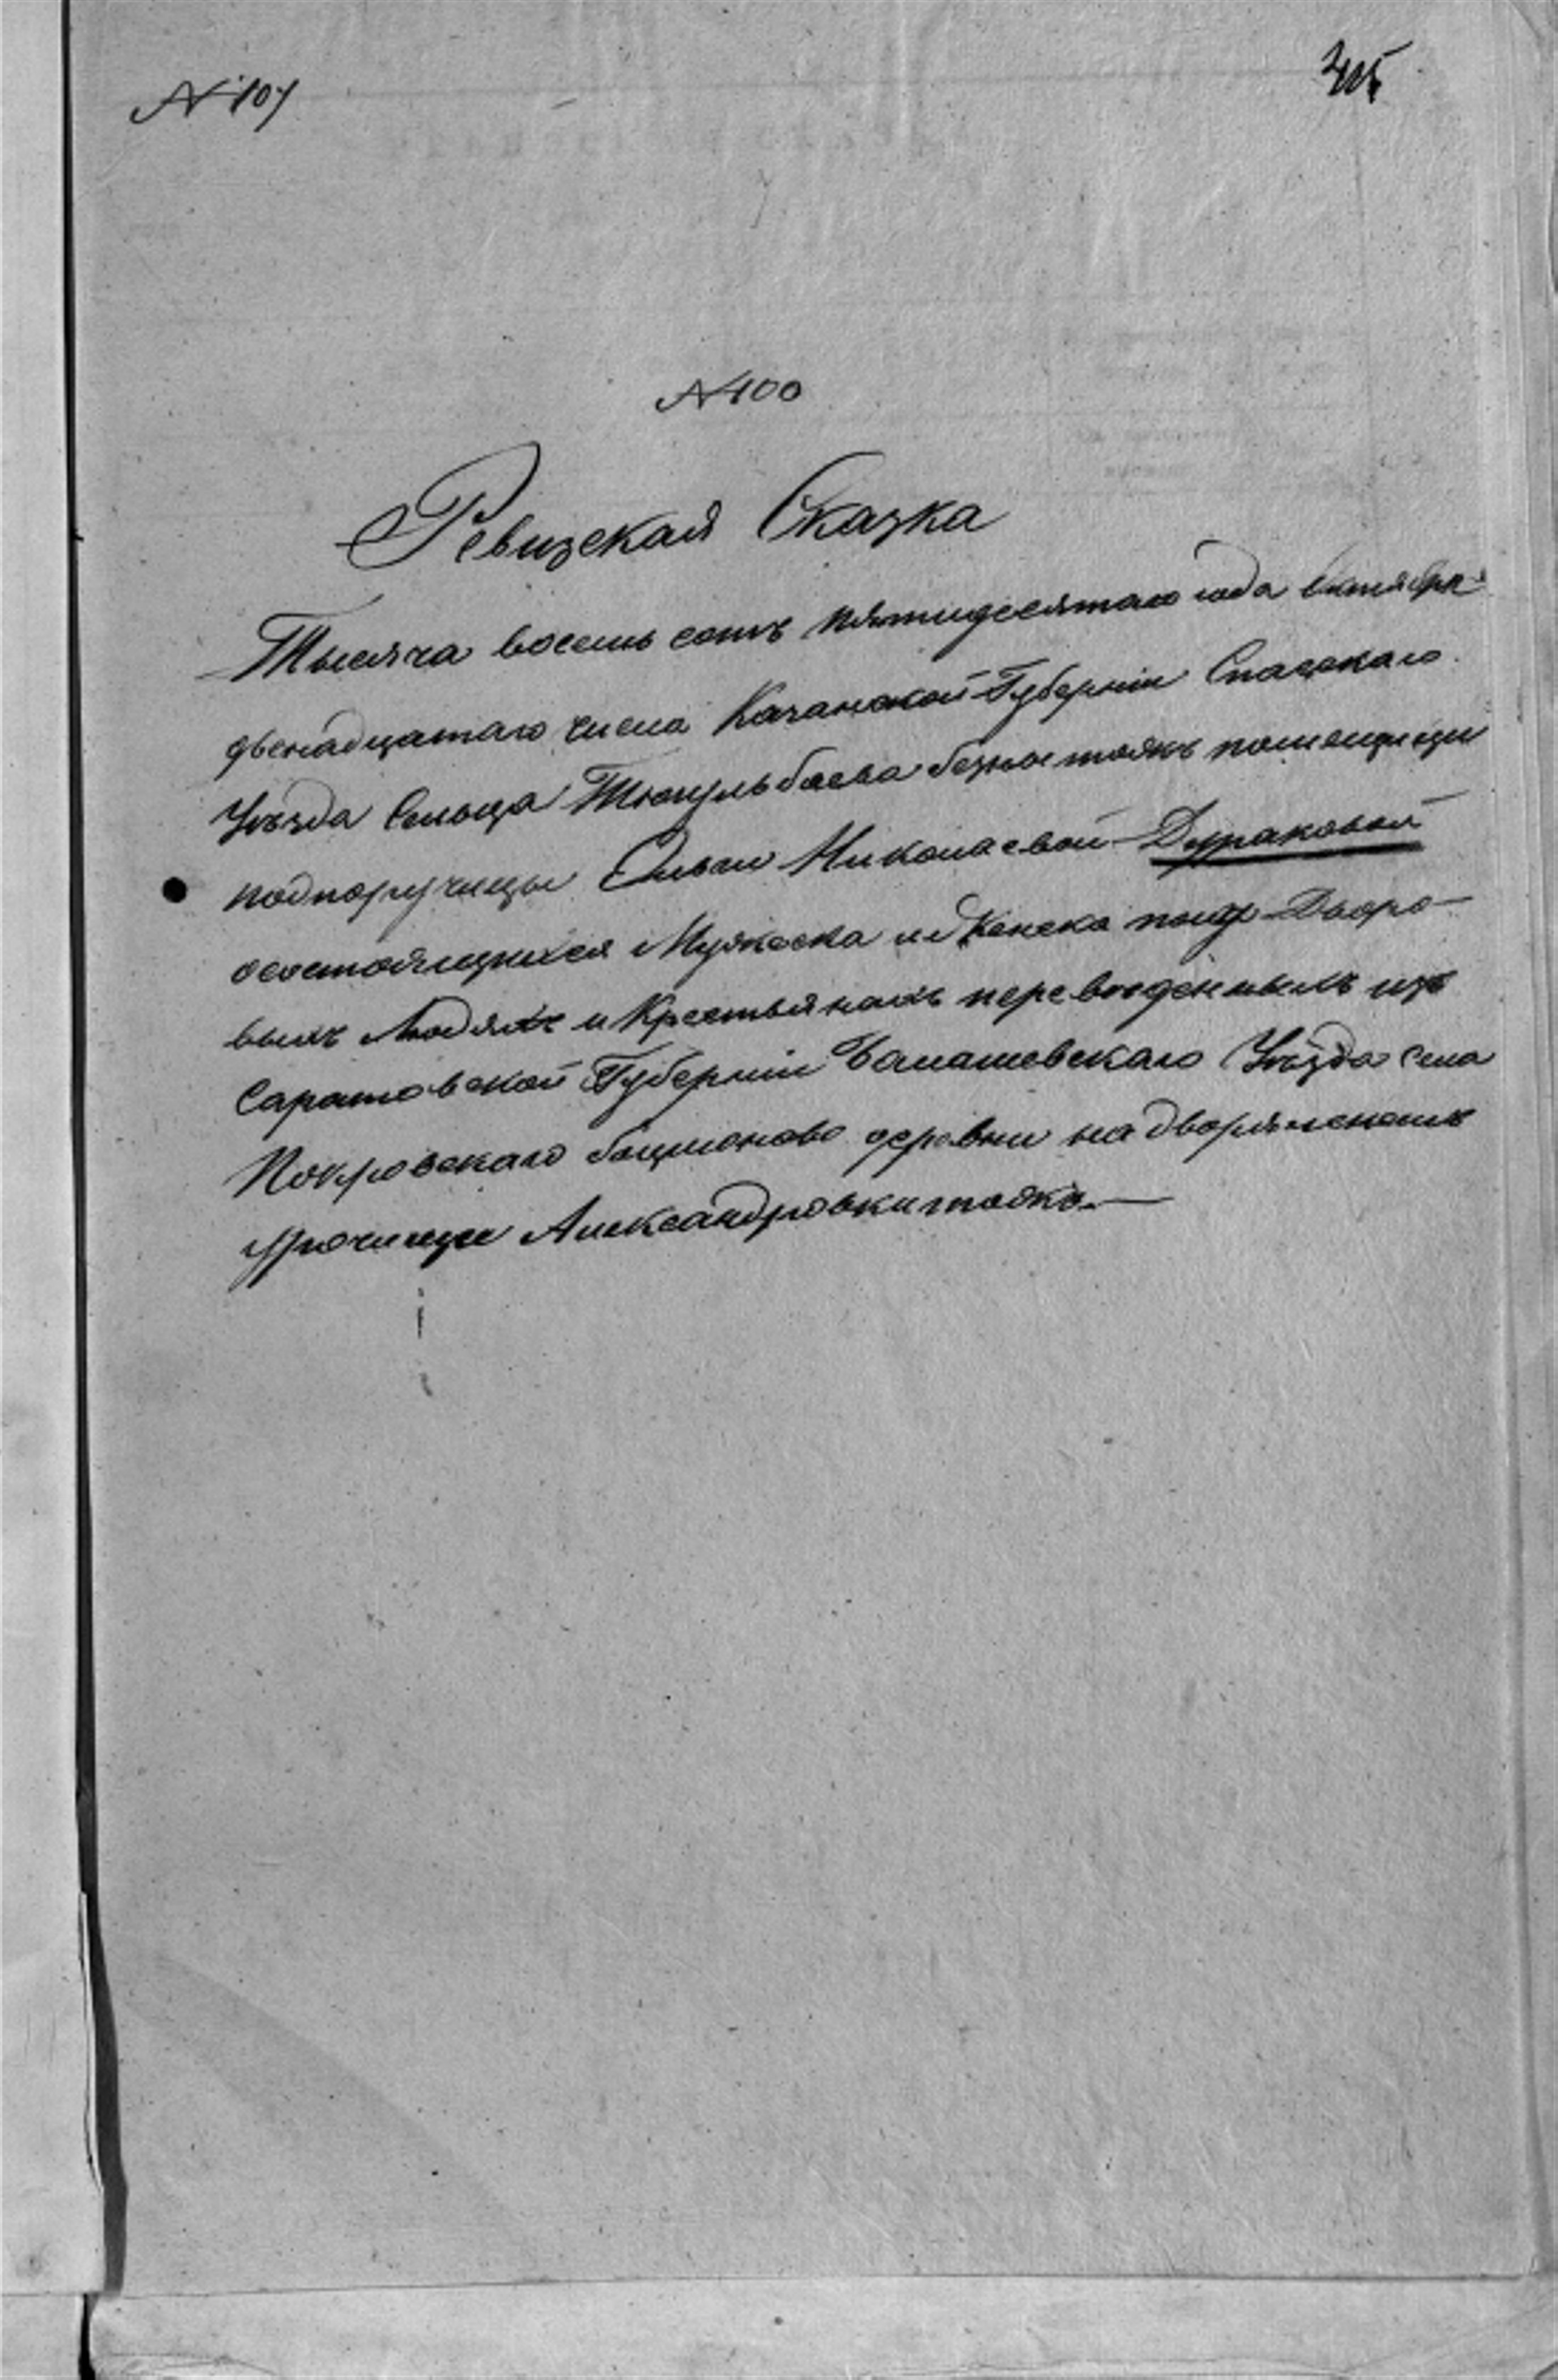 N 101
N 100
Ревизская Сказка
Тысяча восемь сотъ пятидесятаго года Октября
двенадцатаго числа Казанской Губернiи Спаскаго
Уѣзда Сельца Тюгульбаева тожъ помещицы
подпоручицы Ольги Николаевой Дураковой
о состоящихся Мужеска и Женска пола Дворо-
выхъ Людяхъ и Крестьянахъ переведенныхъ изъ
Саратовской Губернiи Балашевскаго Уѣзда Села
Покровскаго деревни на дворянскомъ
урочище Александровки тожъ.